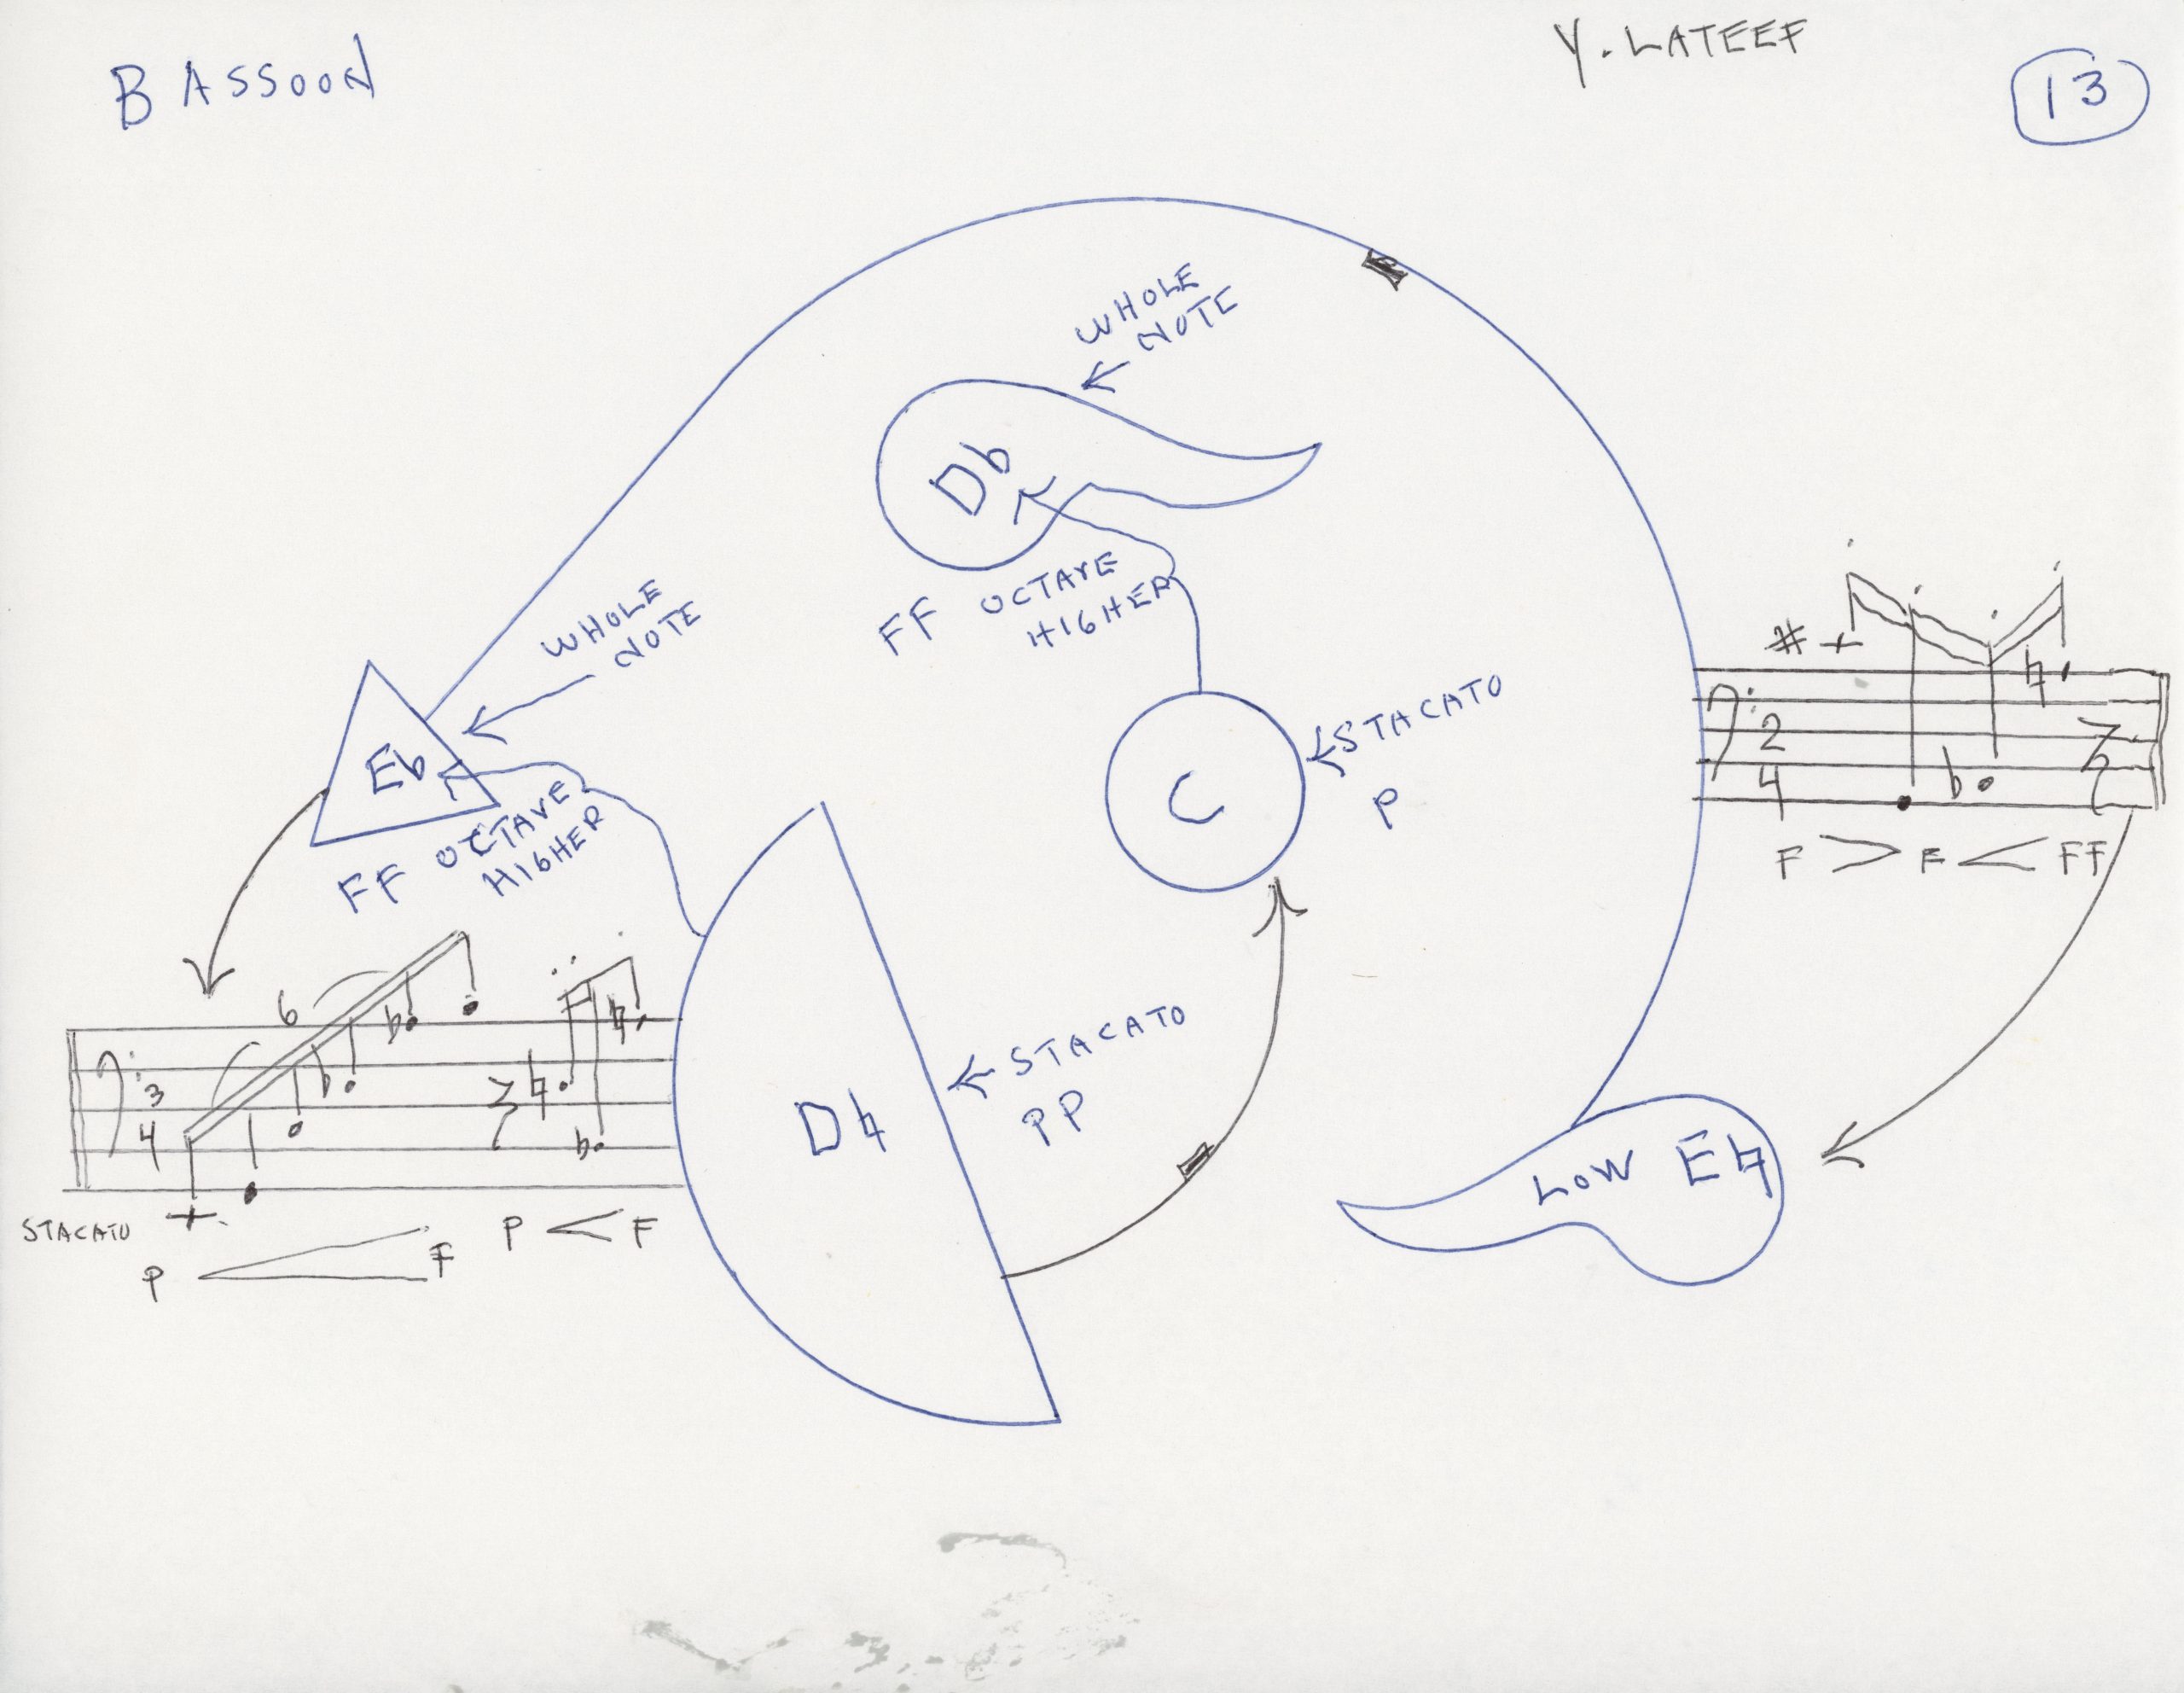 BASSOON
Y. LATEEF
13
WHOLE
NOTE
Db
FF OCTAVE
HIGHER
WHOLE
NOTE
Eb
FF OCTAVE
HIGHER
STACATO
P
C
2
4
F > F < FF
6
3
4
STACATO
P < F
P < F
D♮
STACATO
PP
LOW E♮